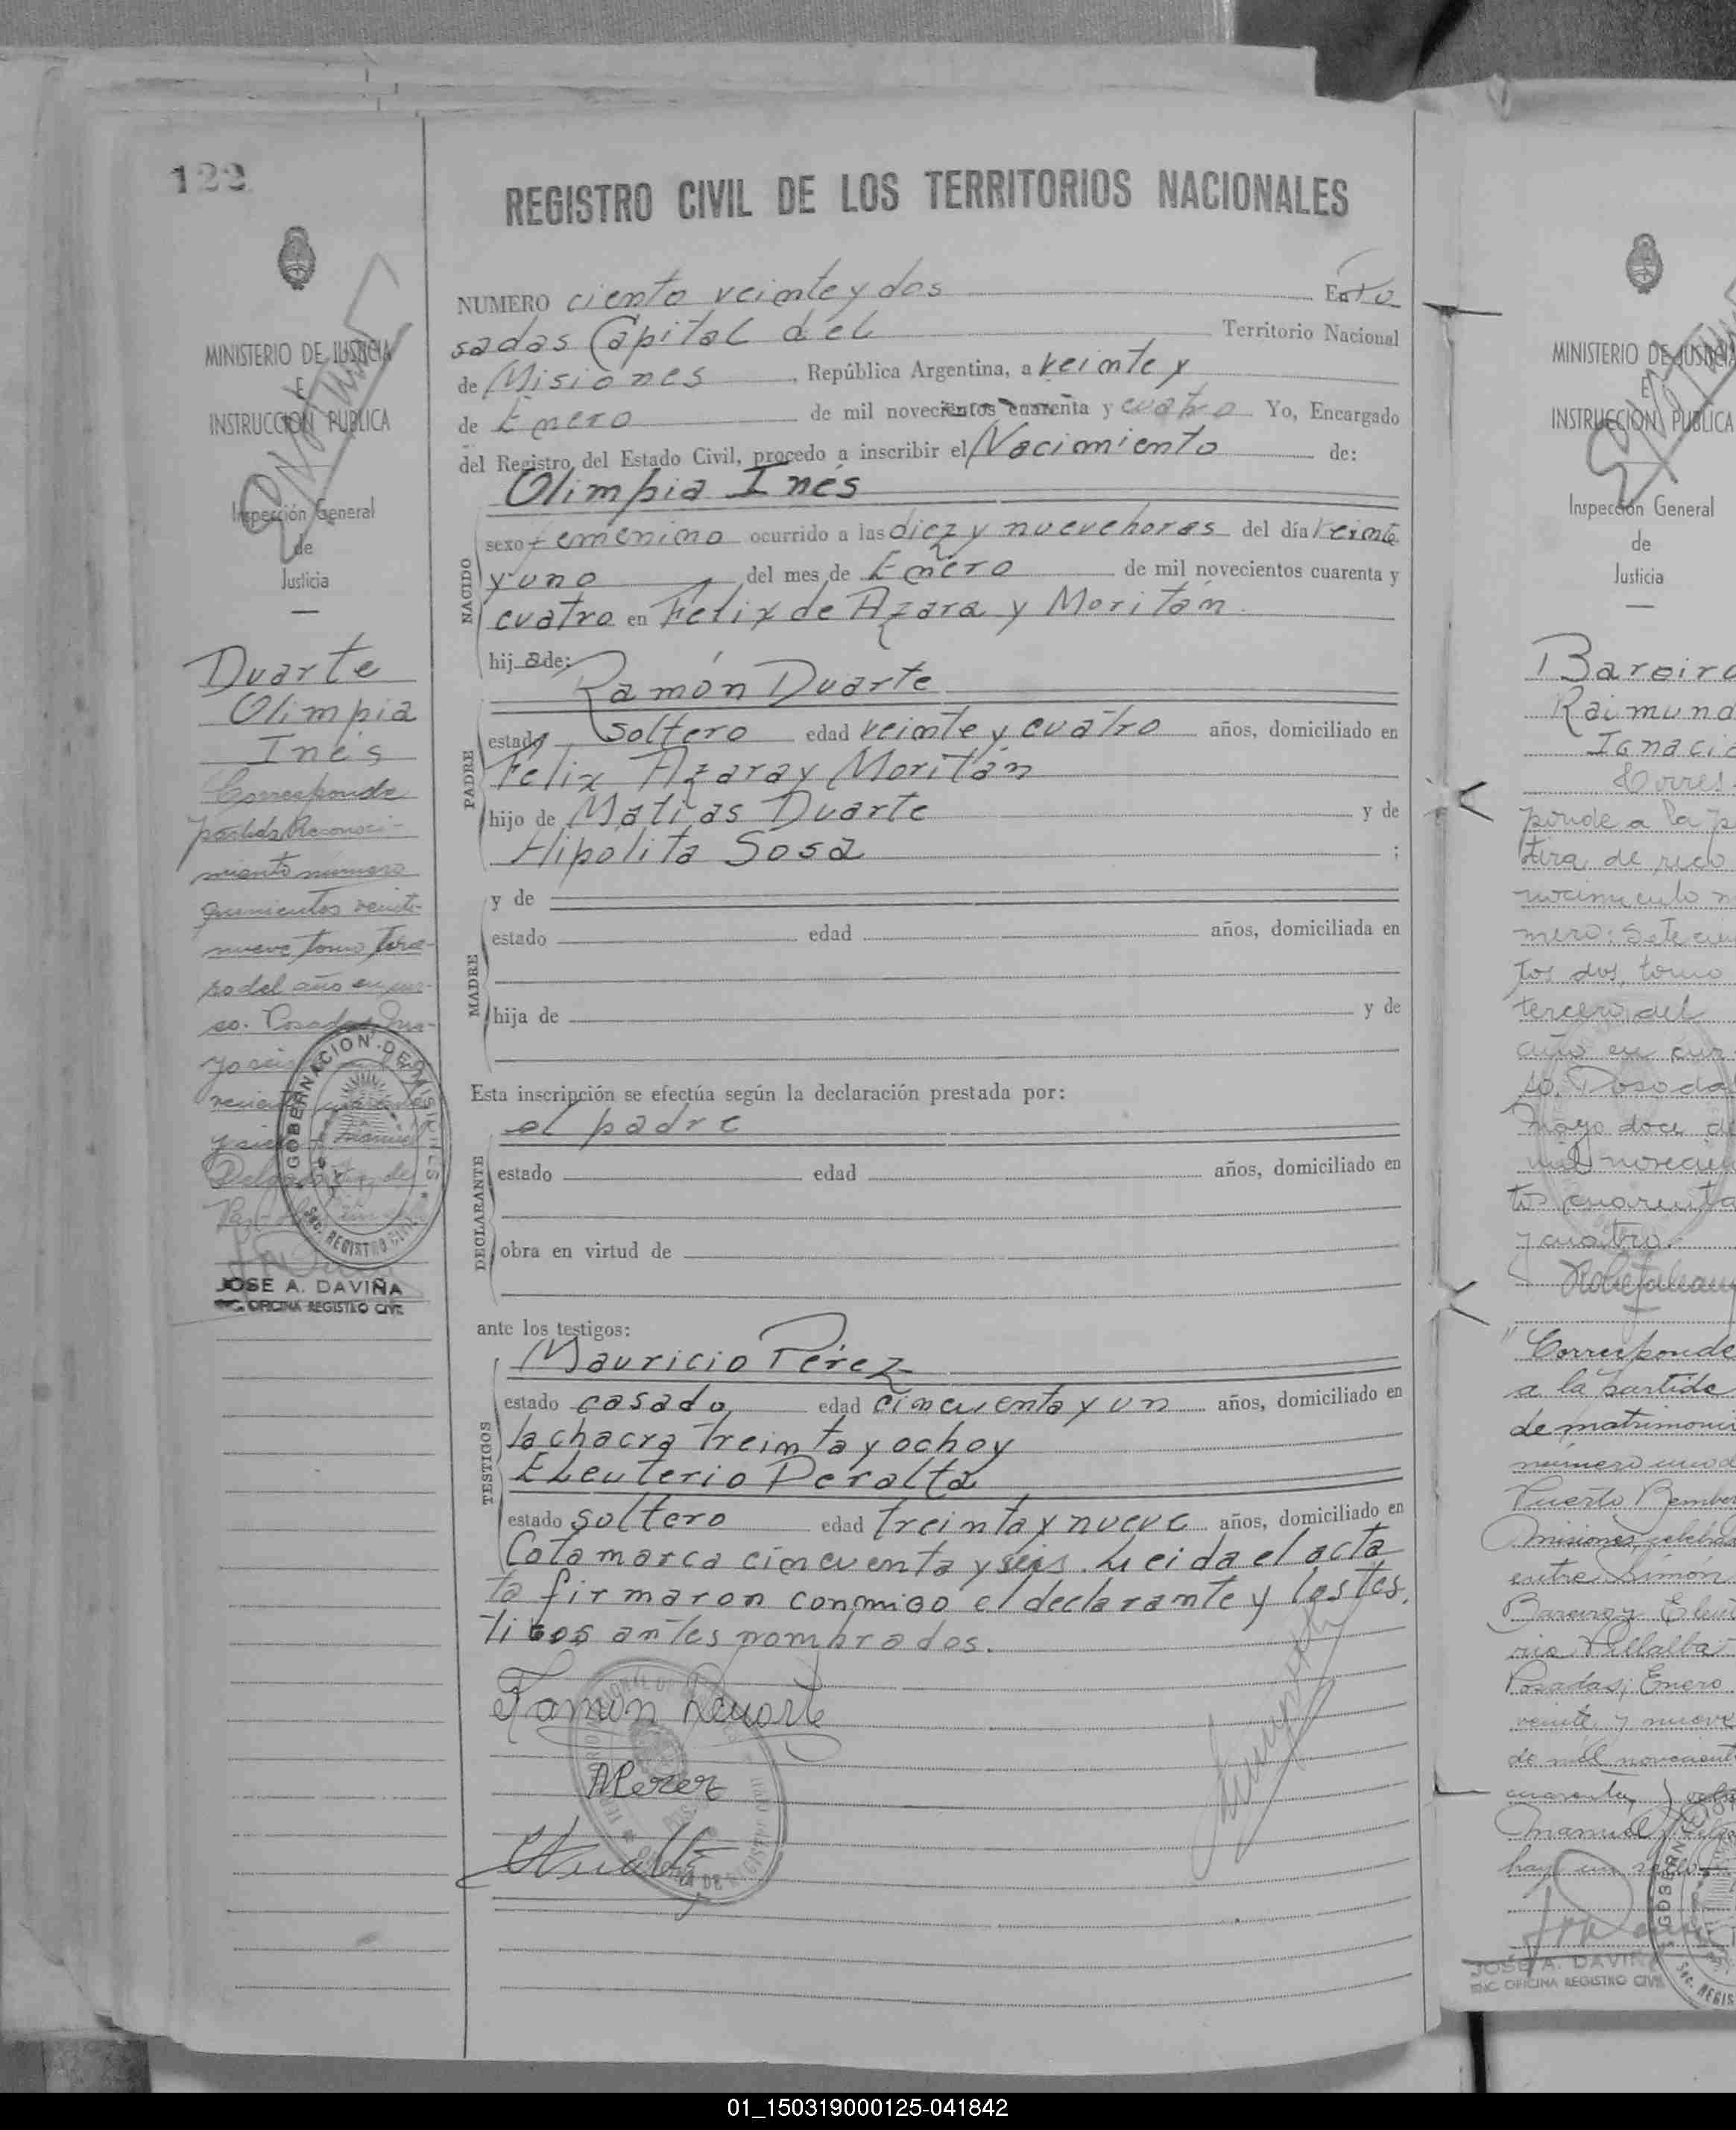 122
REGISTRO CIVIL DE LOS TERRITORIOS NACIONALES
NUMERO ciento veinte y dos En Po
sadas Capital del Territorio Nacional
de Misiones, República Argentina, a veinte y
de Enero de mil novecientos cuarenta y cuatro Yo, Encargado
del Registro del Estado Civil, procedo a inscribir el Nacimiento de:
NACIDO
Olimpia Inés
sexo femenino ocurrido a las diez y nueve horas del día veinte
y uno del mes de Enero de mil novecientos cuarenta y
cuatro en Félix de Azara y Moritán.
hij a de:
PADRE
Ramón Duarte
estado soltero edad veinte y cuatro años, domiciliado en
Félix Azara y Moritán
hijo de Matias Duarte y de
Hipólita Sosa ;
MADRE
y de
estado edad años, domiciliada en
hija de y de
Esta inscripción se efectúa según la declaración prestada por:
DECLARANTE
el padre
estado edad años, domiciliado en
obra en virtud de
ante los testigos:
TESTIGOS
Mauricio Pérez
estado casado edad cincuenta y un años, domiciliado en
la chacra treinta y ocho y
Eleuterio Peralta
estado soltero edad treinta y nueve años, domiciliado en
Catamarca cincuenta y seis. Leida el acta
la firmaron conmigo el declarante y los tes.
tigos antes nombrados.
Ramón Duarte
MPerez
MINISTERIO DE JUSTICIA
E
INSTRUCCION PUBLICA
Inspección General
de
Justicia
Duarte
Olimpia
Inés
Corresponde
partida Reconoci-
miento número
quinientos veinti-
nueve tomo terce-
ro del año en cur-
so. Posadas, Ma-
yo
y
Delgado
GOBERNACION DE MISIONES
Sec. REGISTRO CIVIL
JOSE A. DAVIÑA
ENC. OFICINA REGISTRO CIVIL
MINISTERIO DE JUSTICIA
E
INSTRUCCION PUBLICA
Inspección General
de
Justicia
Bareiro
Raimund
Ignacio
Corres-
ponde a la p
tira de reco
nocimiento n
mero: Setecien
tos dos, tomo
tercero del
año en cur-
so. Posadas
Mayo doce de
mil novecien
tos cuarenta
y cuatro.
"Corresponde
a la partida
de matrimoni
número uno d
Puerto Bember
Misiones celebra
entre Simón
Bareiro y Eleut
ria Villalba
Posadas, Enero
veinte y nueve
de mil novecient
cuarenta y
Manuel
hay un sello
JOSE A. DAVIÑ
ENC. OFICINA REGISTRO CIVIL
01_150319000125-041842